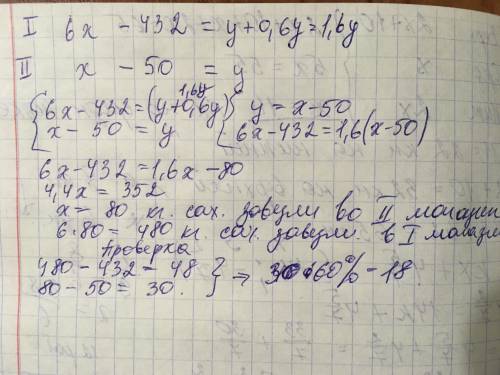 I 6x - 432 = y+0,6y = 1,6y
II x - 50 = y
1,6y
{6x-432=(y+0,6y) { y = x-50
{x - 50 = y { 6x-432=1,6(x-50)
6x-432=1,6x-80
4,4x = 352
x = 80 кг. сах. завезли во II магазин
6·80= 480 кг сах. завезли в I магази
Проверка
480-432-48 } ⇒ 30·60%-18.
80-50= 30.